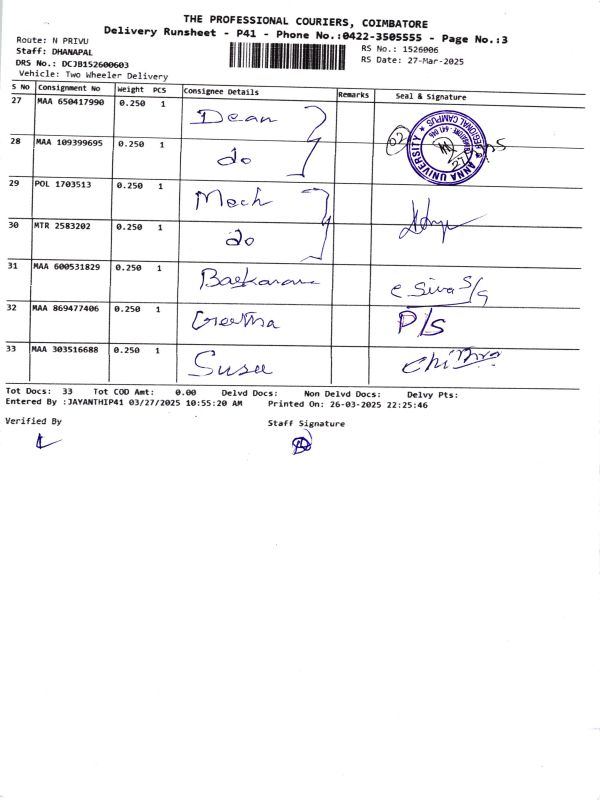 THE PROFESSIONAL COURIERS, COIMBATORE
Delivery Runsheet - P41 - Phone No.:0422-3505555 - Page No.:3
Route: N PRIVU
RS No.: 1526006
Staff: DHANAPAL
RS Date: 27-Mar-2025
DRS No.: DCJB152600603
Vehicle: Two Wheeler Delivery
S No Consignment No Weight PCS Consignee Details Remarks Seal & Signature
27 MAA 650417990 0.250 1 Dean
02
ANNA UNIVERSITY
REGIONAL CAMPUS
28 MAA 109399695 0.250 1 do
29 POL 1703513 0.250 1 Mech
30 MTR 2583202 0.250 1 do
31 MAA 600531829 0.250 1 Baskaran e Siva S/G
32 MAA 869477406 0.250 1 Geetha P/S
33 MAA 303516688 0.250 1 Susee Chithra
Tot Docs: 33 Tot COD Amt: 0.00 Delvd Docs: Non Delvd Docs: Delvy Pts:
Entered By :JAYANTHIP41 03/27/2025 10:55:20 AM Printed On: 26-03-2025 22:25:46
Verified By Staff Signature